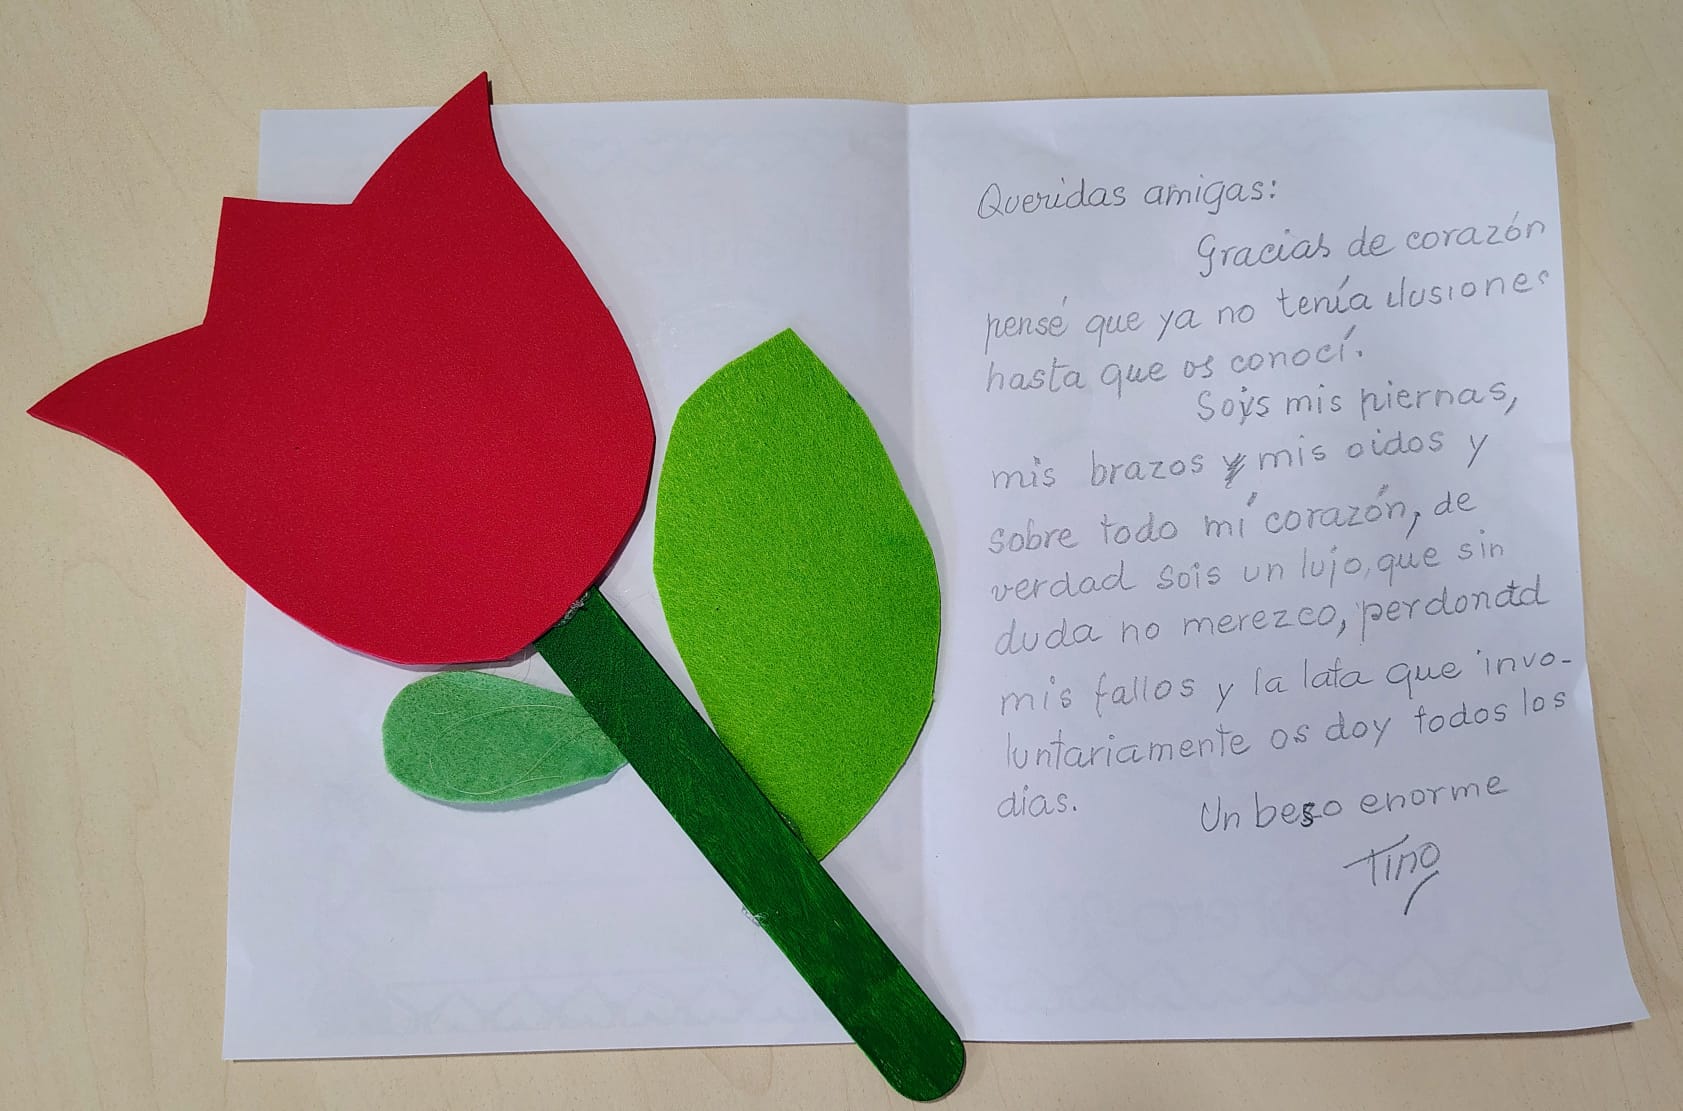 Queridas amigas:
Gracias de corazón
pensé que ya no tenía ilusiones
hasta que os conocí.
Soys mis piernas,
mis brazos y mis oidos y
sobre todo mí corazón, de
verdad sois un lujo, que sin
duda no merezco, perdonad
mis fallos y la lata que invo-
luntariamente os doy todos los
dias.
Un beso enorme
Tino